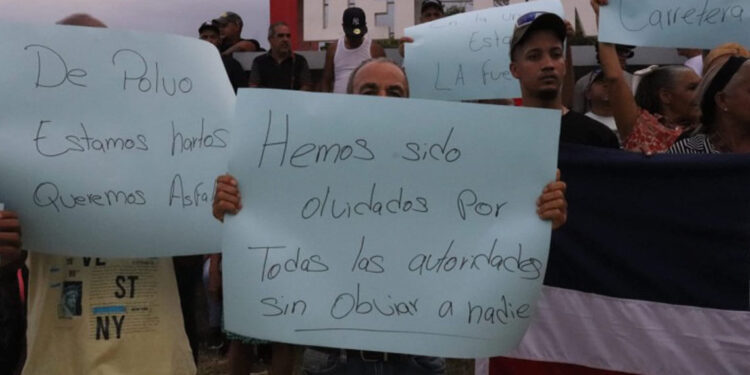 De Polvo
Estamos hartos
Queremos
Hemos sido
olvidados por
Todas las autoridades
sin Obviar a nadie
LA
Carretera
ST
NY